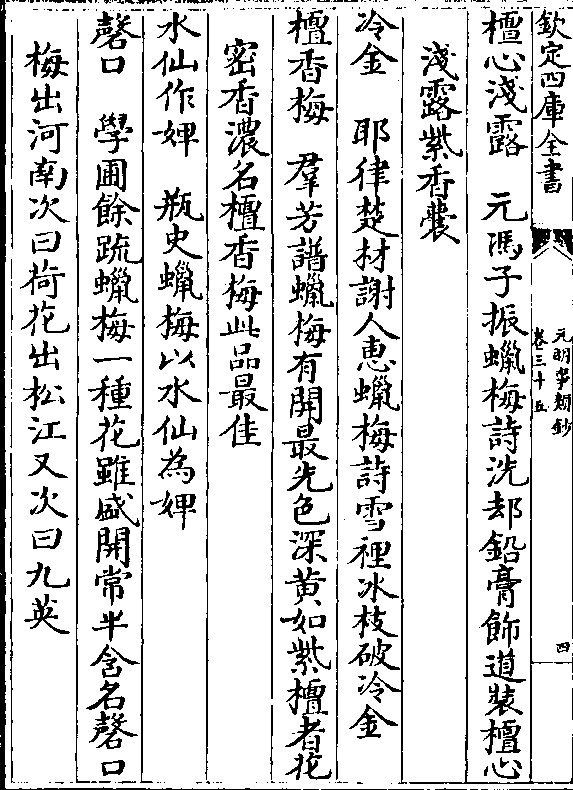 欽定四庫全書
元明事類鈔
卷三十五
四
檀心淺露　元馮子振蠟梅詩洗却鉛膏飾道裝檀心
淺露紫香囊
冷金　耶律楚材謝人惠蠟梅詩雪裡冰枝破冷金
檀香梅　羣芳譜蠟梅有開最先色深黃如紫檀者花
密香濃名檀香梅此品最佳
水仙作婢　瓶史蠟梅以水仙為婢
磬口　學圃餘疏蠟梅一種花雖盛開常半含名磬口
梅出河南次曰荷花出松江又次曰九英